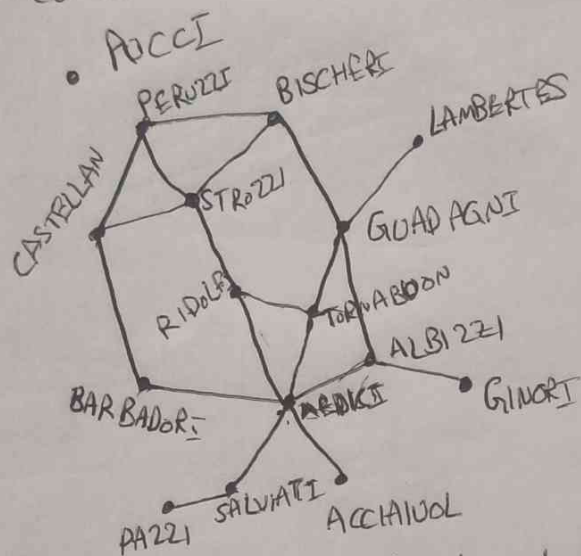 PUCCI
PERUZZI
BISCHERI
LAMBERTES
CASTELLAN
STROZZI
GUADAGNI
RIDOLFI
TORNABUON
ALBIZZI
BARBADORI
MEDICI
GINORI
SALVIATI
ACCIAIUOL
PAZZI